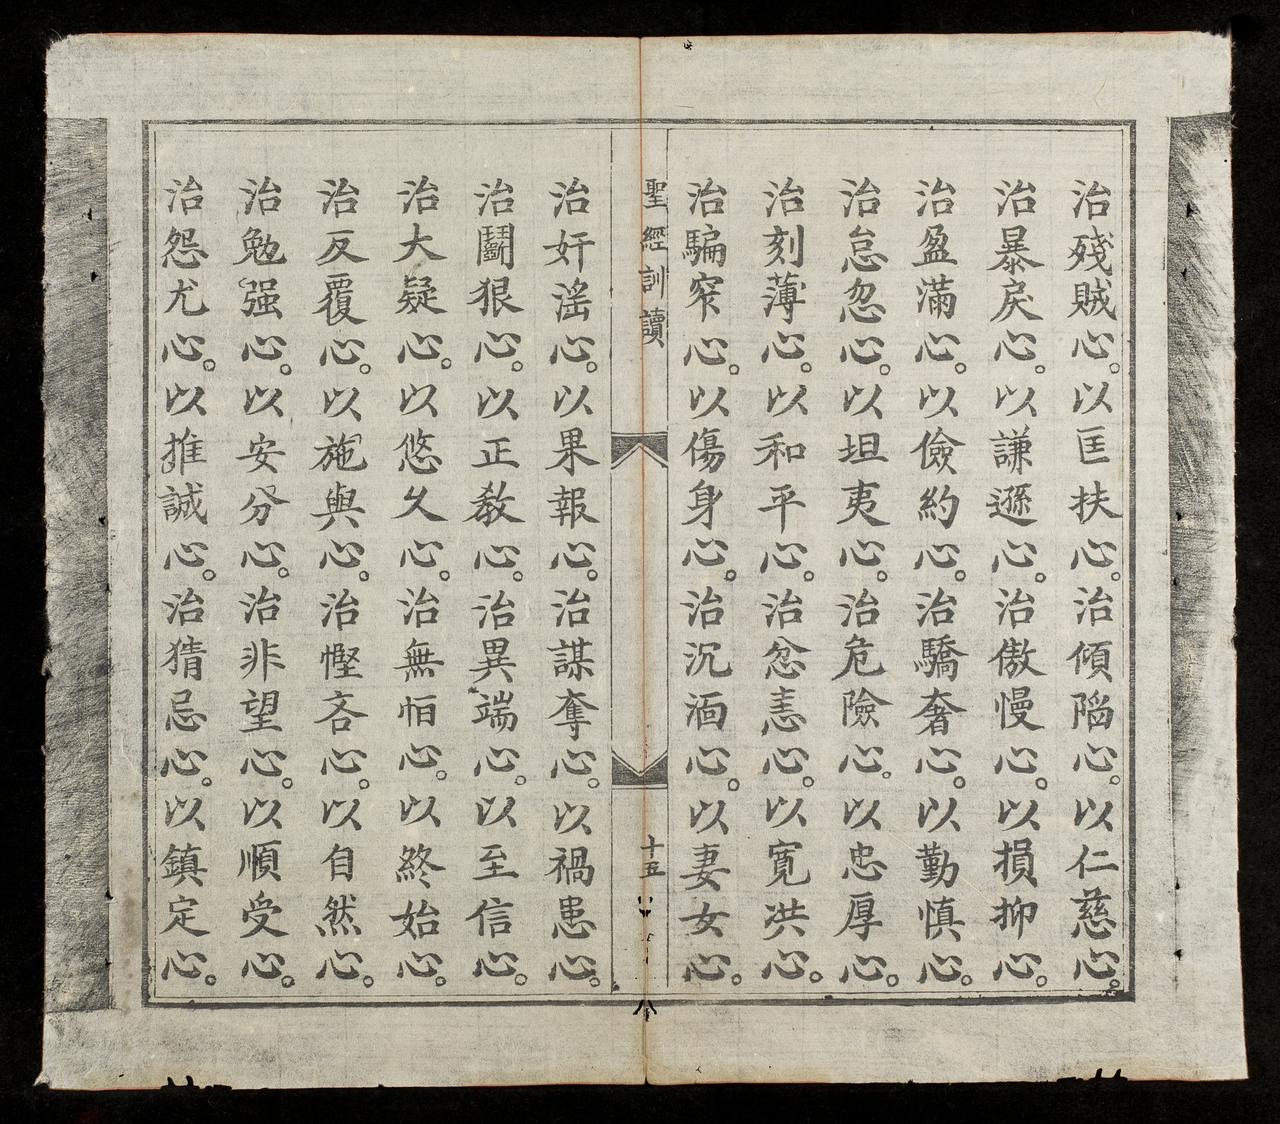 治殘賊心。以匡扶心。治傾陷心。以仁慈心。
治暴戾心。以謙遜心。治傲慢心。以損抑心。
治盈滿心。以儉約心。治驕奢心。以勤慎心。
治怠忽心。以坦夷心。治危險心。以忠厚心。
治刻薄心。以和平心。治忿恚心。以寬洪心。
治騙窄心。以傷身心。治沉湎心。以妻女心。
聖經訓讀
十五
治奸滛心。以果報心。治謀奪心。以禍患心。
治鬬狠心。以正教心。治異端心。以至信心。
治大疑心。以悠久心。治無恒心。以終始心。
治反覆心。以施與心。治慳吝心。以自然心。
治勉强心。以安分心。治非望心。以順受心。
治怨尤心。以推誠心。治猜忌心。以鎮定心。